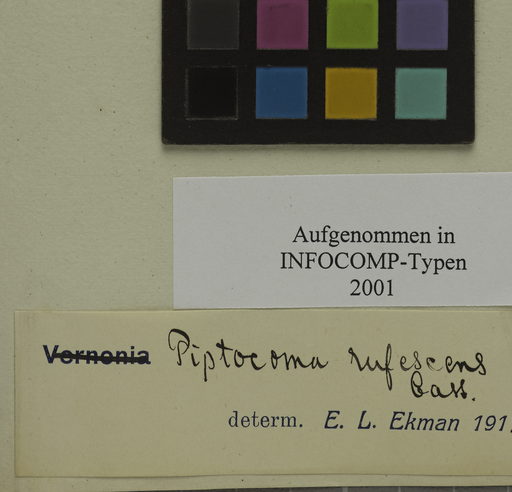 Aufgenommen in
INFOCOMP-Typen
2001
Vernonia Piptocoma rufescens
Cass.
determ. E. L. Ekman 191